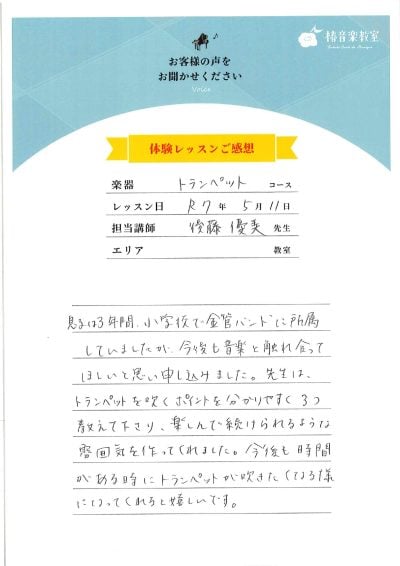 椿音楽教室
お客様の声を
お聞かせください
Voice
体験レッスンご感想
楽器 トランペット コース
レッスン日 R7年 5月 11日
担当講師 後藤 優美 先生
エリア 教室
息子は3年間、小学校で金管バンドに所属
していましたが、今後も音楽と触れ合って
ほしいと思い申し込みました。先生は、
トランペットを吹くポイントを分かりやすく3つ
教えて下さり、楽しんで続けられるような
雰囲気を作ってくれました。今後も時間
がある時にトランペットが吹きたくなる様
になってくれると嬉しいです。